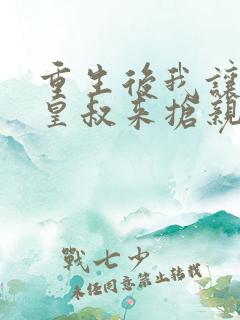 重生後我讓
皇叔來搶親
戰七少
未經同意禁止轉載